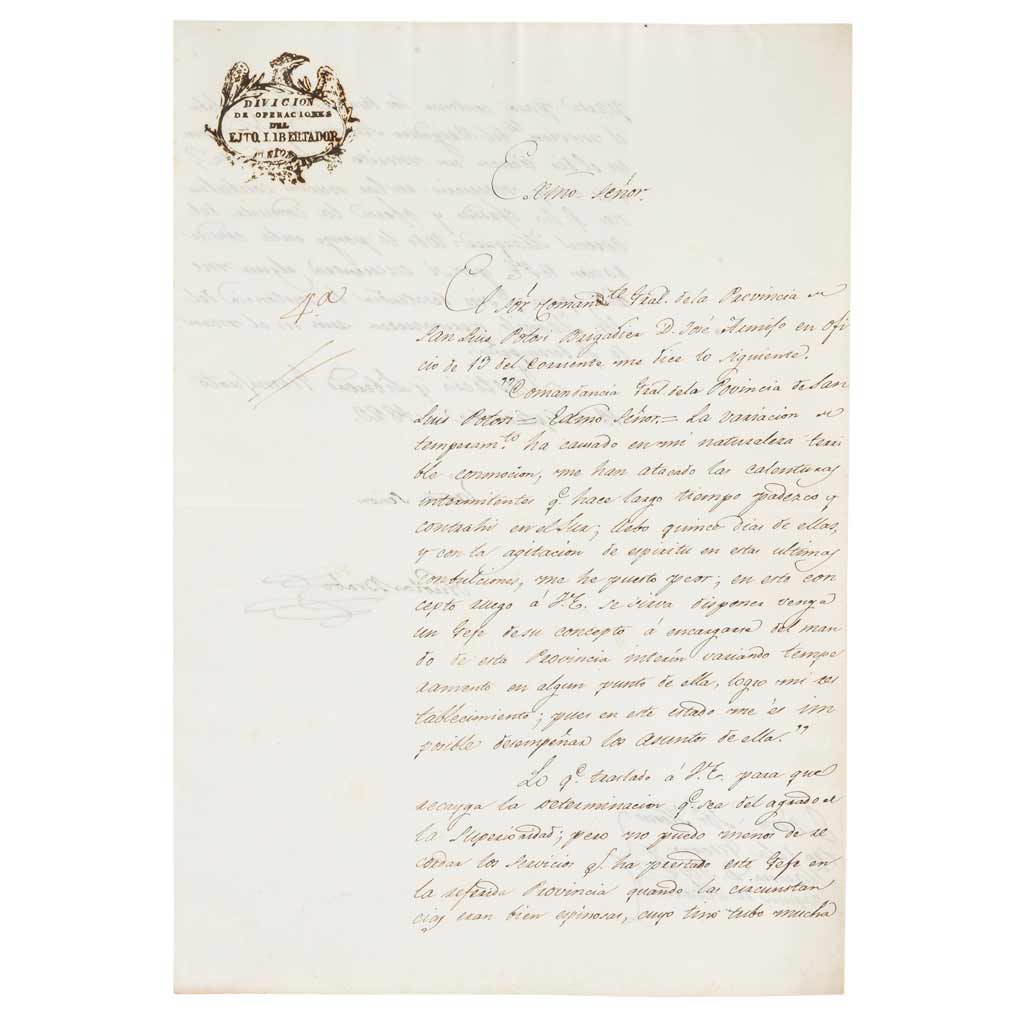 DIVICION
DE OPERACIONES
DEL
EJTO. LIBERTADOR
Exmo. Señor.
4.ª
El Sõr. Comand.te Gral. de la Provincia de
San Luis Potosi Brigadier D. José en ofi
cio de 13 del corriente me dice lo siguiente.
"Comandancia Gral. de la Povincia de San
Luis Potosi = Exmo. Señor. = La variacion de
temperam.to ha causado en mi naturaleza terri
ble conmocion, me han atacado las calenturas
intermitentes q.e hace largo tiempo padezco y
contrahi en el Sur; debo quince dias de ellas,
y con la agitacion de espiritu en estas ultimas
combulciones, me he puesto peor; en este con
cepto ruego á V.E. se sirva disponer venga
un Gefe de su concepto á encargarse del man
do de esta Provincia interin variando tempe
ramento en algun punto de ella, logro mi res
tablecimiento; pues en este estado me és im
posible desempeñar los asuntos de ella."
Lo q.e traslado á V.E. para que
recayga la determinacion q.e sea del agrado de
la Superioridad; pero no puedo menos de re
cordar los servicios q.e ha prestado este Gefe en
la referida Provincia quando las circunstan
cias eran bien espinosas, cuyo tino tubo mucha